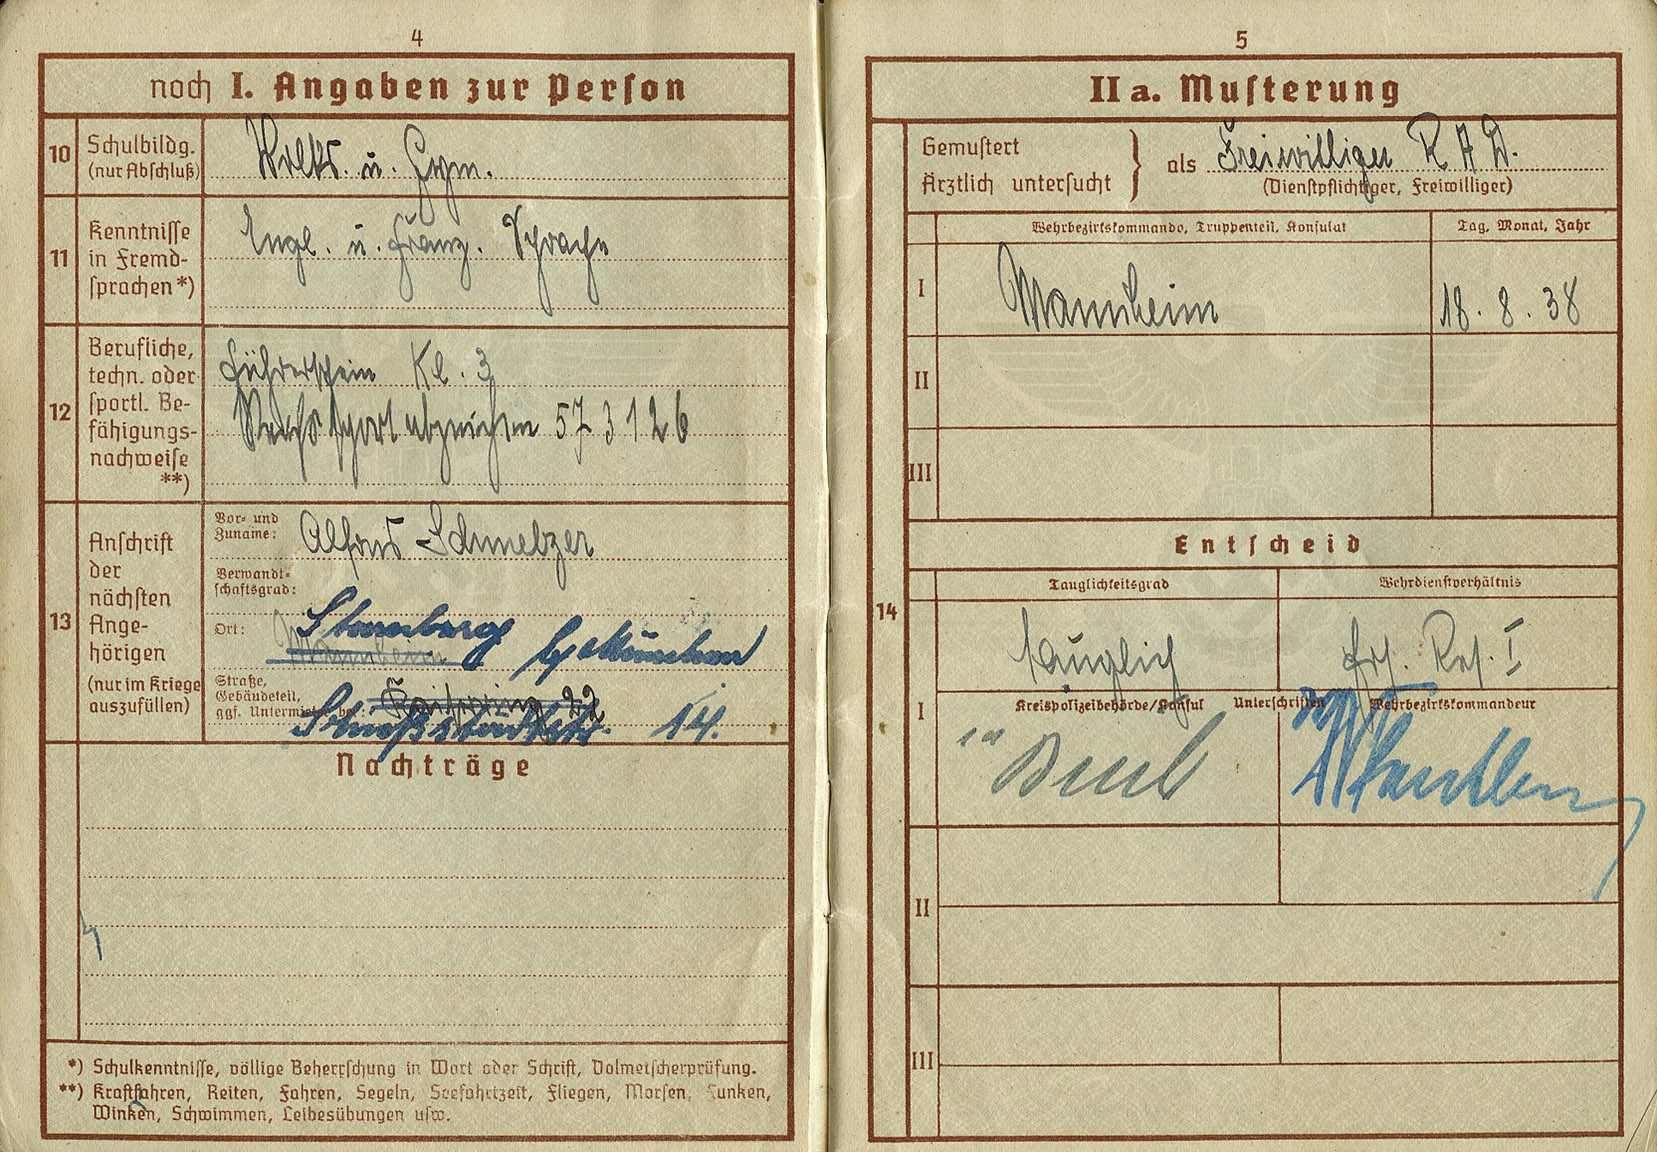 4
noch I. Angaben zur Person
10
Schulbildg.
(nur Abschluß)
Volks. u. Gym.
11
Kenntnisse
in Fremd-
sprachen *)
Engl. u. Franz. Sprache
12
Berufliche,
techn. oder
sportl. Be-
fähigungs-
nachweise
**)
Führerschein Kl. 3
Reichssportabzeichen 573126
13
Anschrift
der
nächsten
Ange-
hörigen
(nur im Kriege
auszufüllen)
Vor- und
Zuname:
Alfons Schmelzer
Verwandt-
schaftsgrad:
Ort:
Mannheim
Starnberg b/ München
Straße,
Gebäudeteil,
ggf. Untermieter bei
22
14.
Nachträge
*) Schulkenntnisse, völlige Beherrschung in Wort oder Schrift, Dolmetscherprüfung.
**) Kraftfahren, Reiten, Fahren, Segeln, Seefahrtzeit, Fliegen, Morsen, Funken,
Winken, Schwimmen, Leibesübungen usw.
5
II a. Musterung
Gemustert
Ärztlich untersucht
als Freiwilliger R A D.
(Dienstpflichtiger, Freiwilliger)
Wehrbezirkskommando, Truppenteil, Konsulat
Tag, Monat, Jahr
I
Mannheim
18. 8. 38
II
III
Entscheid
14
Tauglichkeitsgrad
Wehrdienstverhältnis
tauglich
Ers. Res. I
I
Kreispolizeibehörde/Konsul
Unterschriften
Wehrbezirkskommandeur
II
III